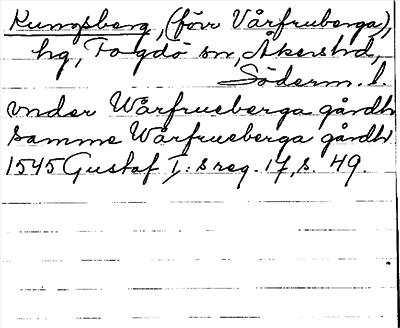 Kungsberg, (förr Vårfruberga),
hg, Fogdö sn, Åkershd,
Söderm. l.
vnder Wårfrueberga gårdh
samme Wårfrueberga gårdh
1545 Gustaf I:s reg. 17, s. 49.